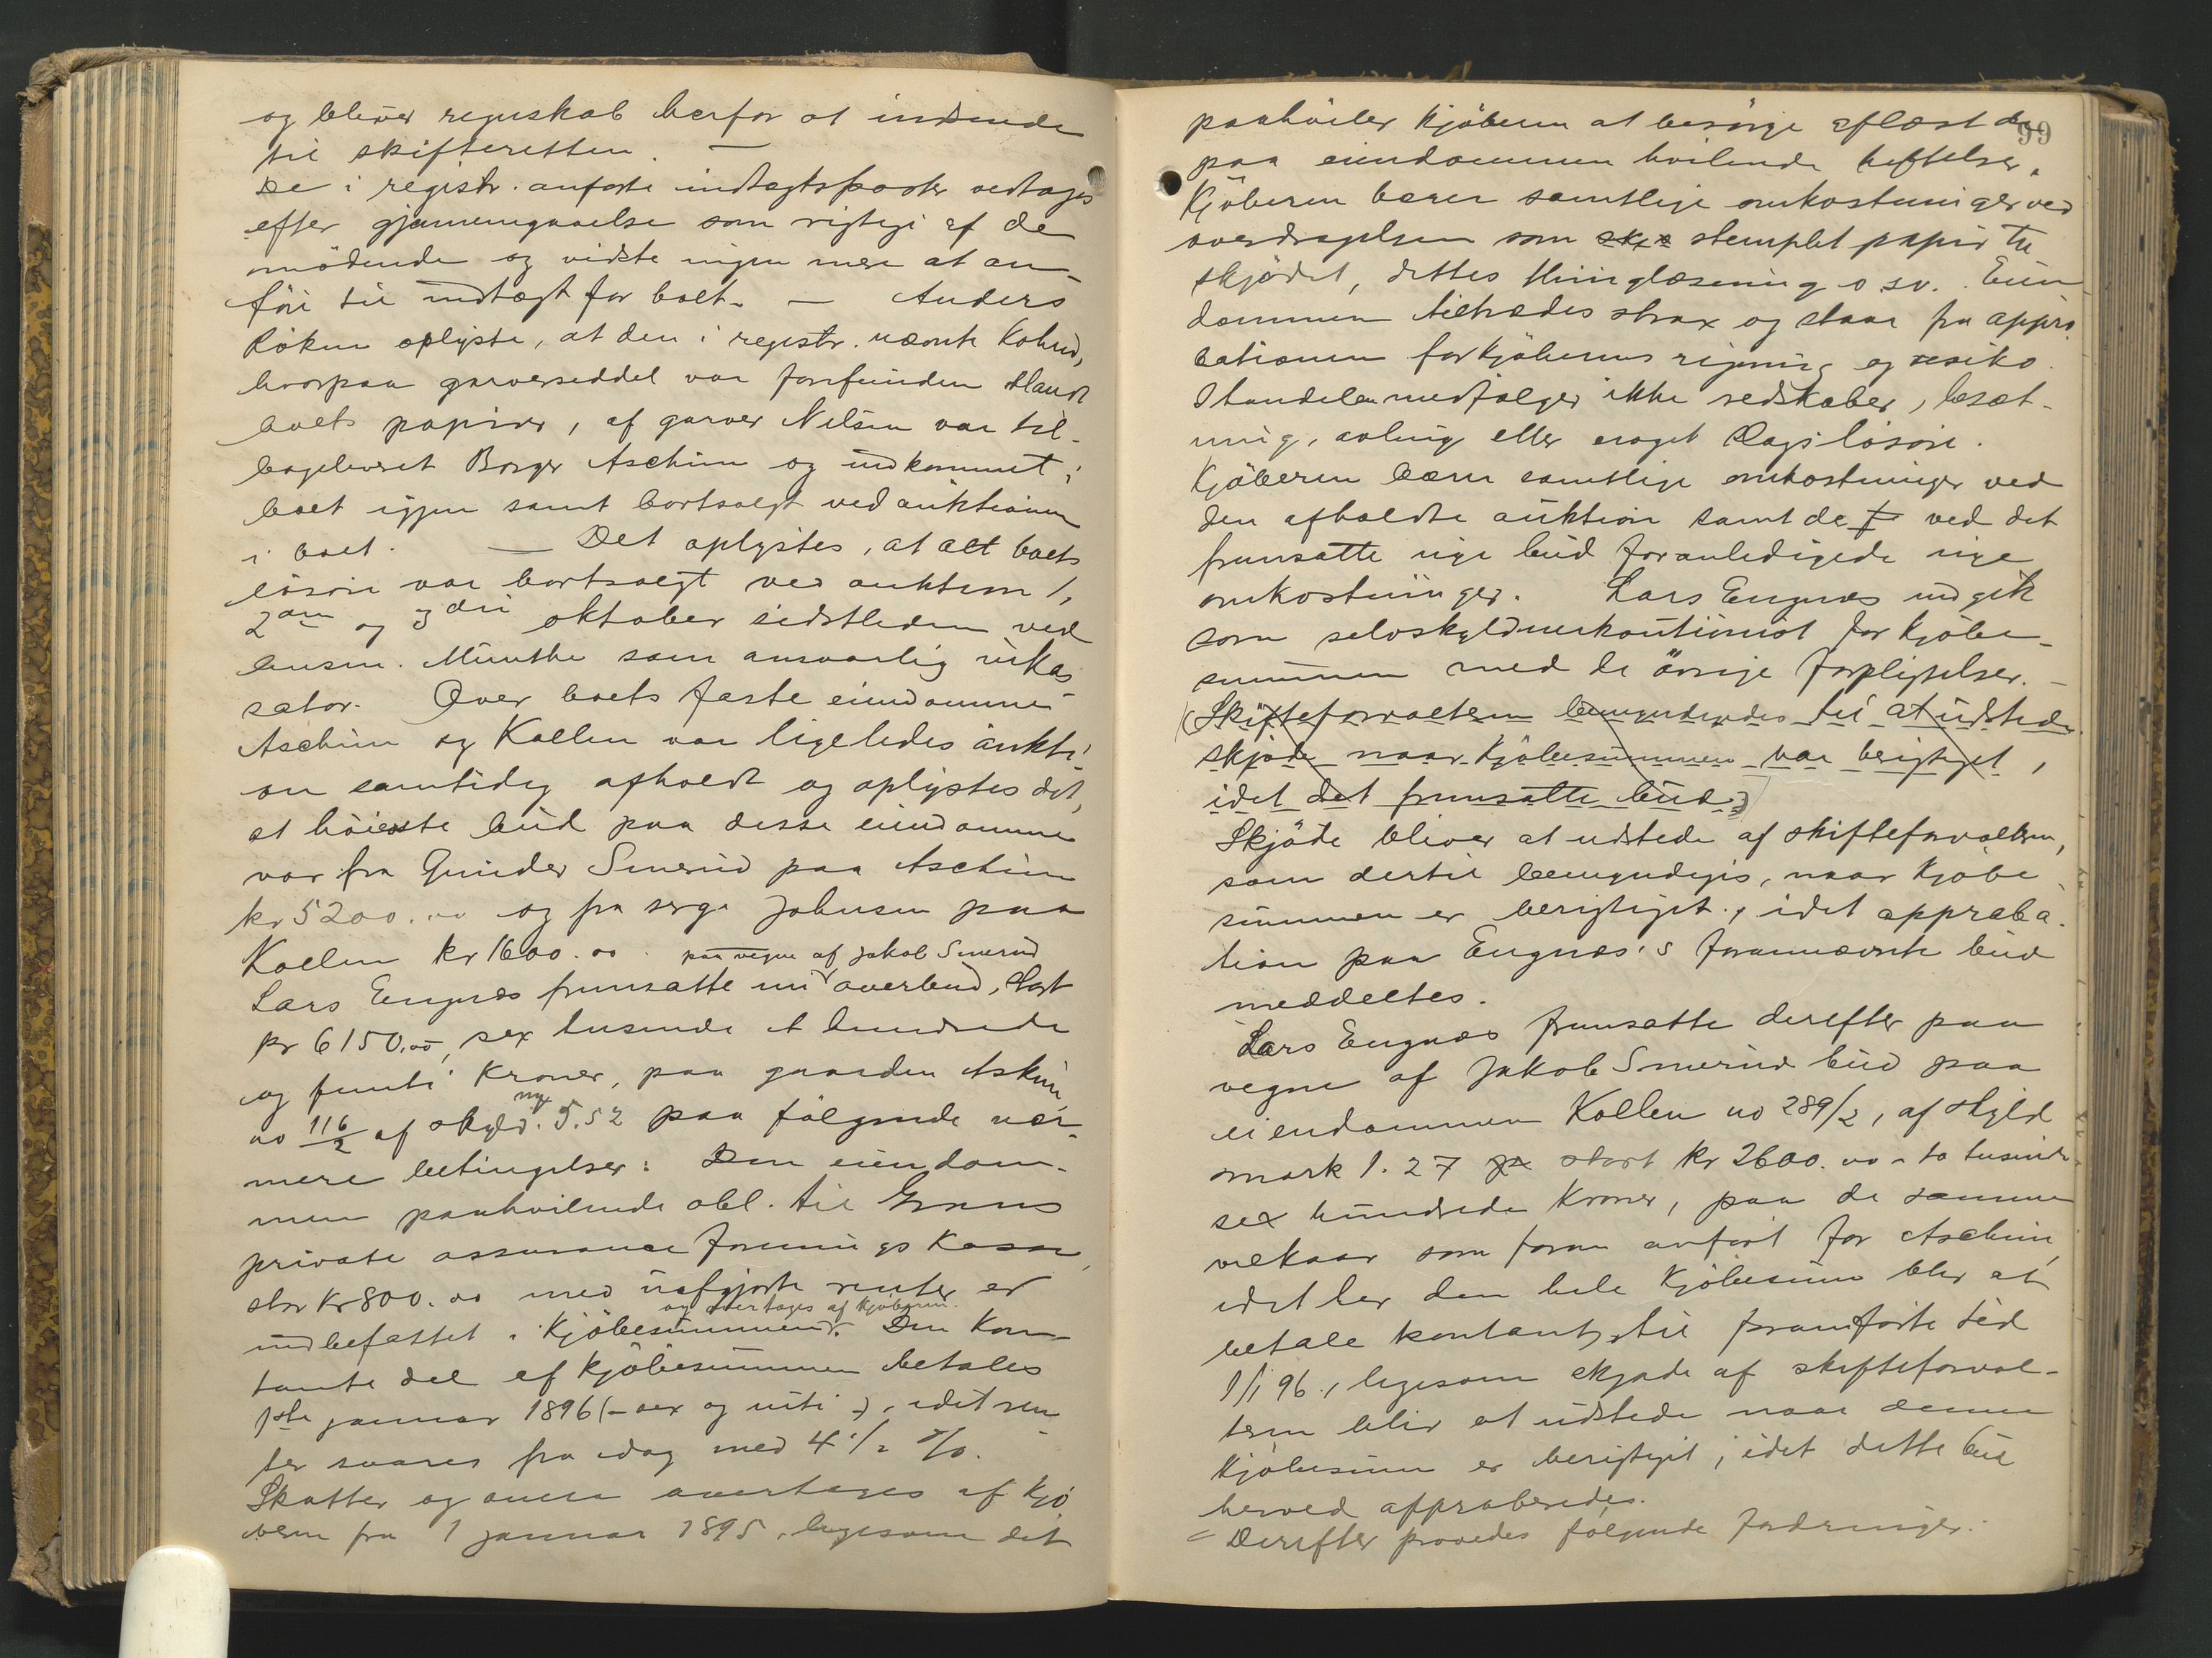 og bliver regnskab herfor at indsende
til skifteretten. —
De i registr. anførte indtægtsposter vedtoges
efter gjennemgaaelse som rigtige af de
mødende og vidste ingen mere at an-
føre til indtægt for boet. — Anders
Røken oplyste, at den i registr. nævnte kohud,
hvorpaa garverseddel var forefunden blandt
boets papirer, af garver Nilsen var til-
bageleveret Borger Aschim og indkommet i
boet igjen samt bortsolgt ved auktionen
i boet. — Det oplystes, at alt boets
løsøre var bortsolgt ved auktion 1,
2den og 3die oktober sidstleden ved
lensm. Munthe som ansvarlig inkas-
sator. Over boets faste eiendomme
Aschim og Kollen var ligeledes aukti-
on samtidig afholdt og oplystes det,
at høieste bud paa disse eiendomme
var fra Gunder Smerud paa Aschim
kr 5200.00 og fra Johnsen paa
Kollen kr 1600.00. paa vegne af Jakob Smerud
Lars Engnæs fremsatte nu overbud, stort
kr 6150.00, sex tusinde et hundrede
og femti kroner, paa gaarden Askim,
no 116/2 af ny skyld. 5.52 paa følgende nær-
mere betingelser: Den eiendom-
men paahvilende obl. til Grans
private assuranceforenings kasse,
stor kr 800.00 med uafgjorte renter er
indbefattet i kjøbesummen og overtages af kjøberen. Den kon-
tante del af kjøbesummen betales
1ste januar 1896 (- sex og niti -), idet ren-
ter svares fra idag med 4 1/2 %.
Skatter og onera overtages af kjø-
beren fra 1 januar 1895, ligesom det
99
paahviler kjøberen at besørge aflæst de
paa eiendommen hvilende heftelser.
Kjøberen bærer samtlige omkostninger ved
overdragelsen som skjø stemplet papir til
skjødet, dettes thinglæsning o.s.v. Eien-
dommen tiltrædes strax og staar fra appro-
bationen for kjøberens regning og resiko.
I handelen medfølger ikke redskaber, besæt-
ning, avling eller noget slags løsøre.
Kjøberen bærer samtlige omkostninger ved
den afholdte auktion samt de f ved det
fremsatte nye bud foranledigede nye
omkostninger. Lars Engnæs indgik
som selvskyldnerkautionist for kjøbe-
summen med de øvrige forpligtelser. —
(Skifteforvalteren bemyndigedes til at udstede
skjøde naar kjøbesummen var berigtiget,
idet det fremsatte bud)
Skjøde bliver at udstede af skifteforvalteren,
som dertil bemyndiges, naar kjøbe-
summen er berigtiget, idet approba-
tion paa Engnæs's forannævnte bud
meddeltes.
Lars Engnæs fremsatte derefter paa
vegne af Jakob Smerud bud paa
eiendommen Kollen no 289/2, af skyld
mark 1.27 paa stort kr 2600.00 - to tusinde
sex hundrede kroner, paa de samme
vilkaar som foran anført for Aschim,
idet her den hele kjøbesum blir at
betale kontant til foranførte tid
1/1 96., ligesom skjøde af skifteforval-
teren blir at udstede naar denne
kjøbesum er berigtiget, idet dette bud
herved approberedes.
Derefter prøvedes følgende fordringer: